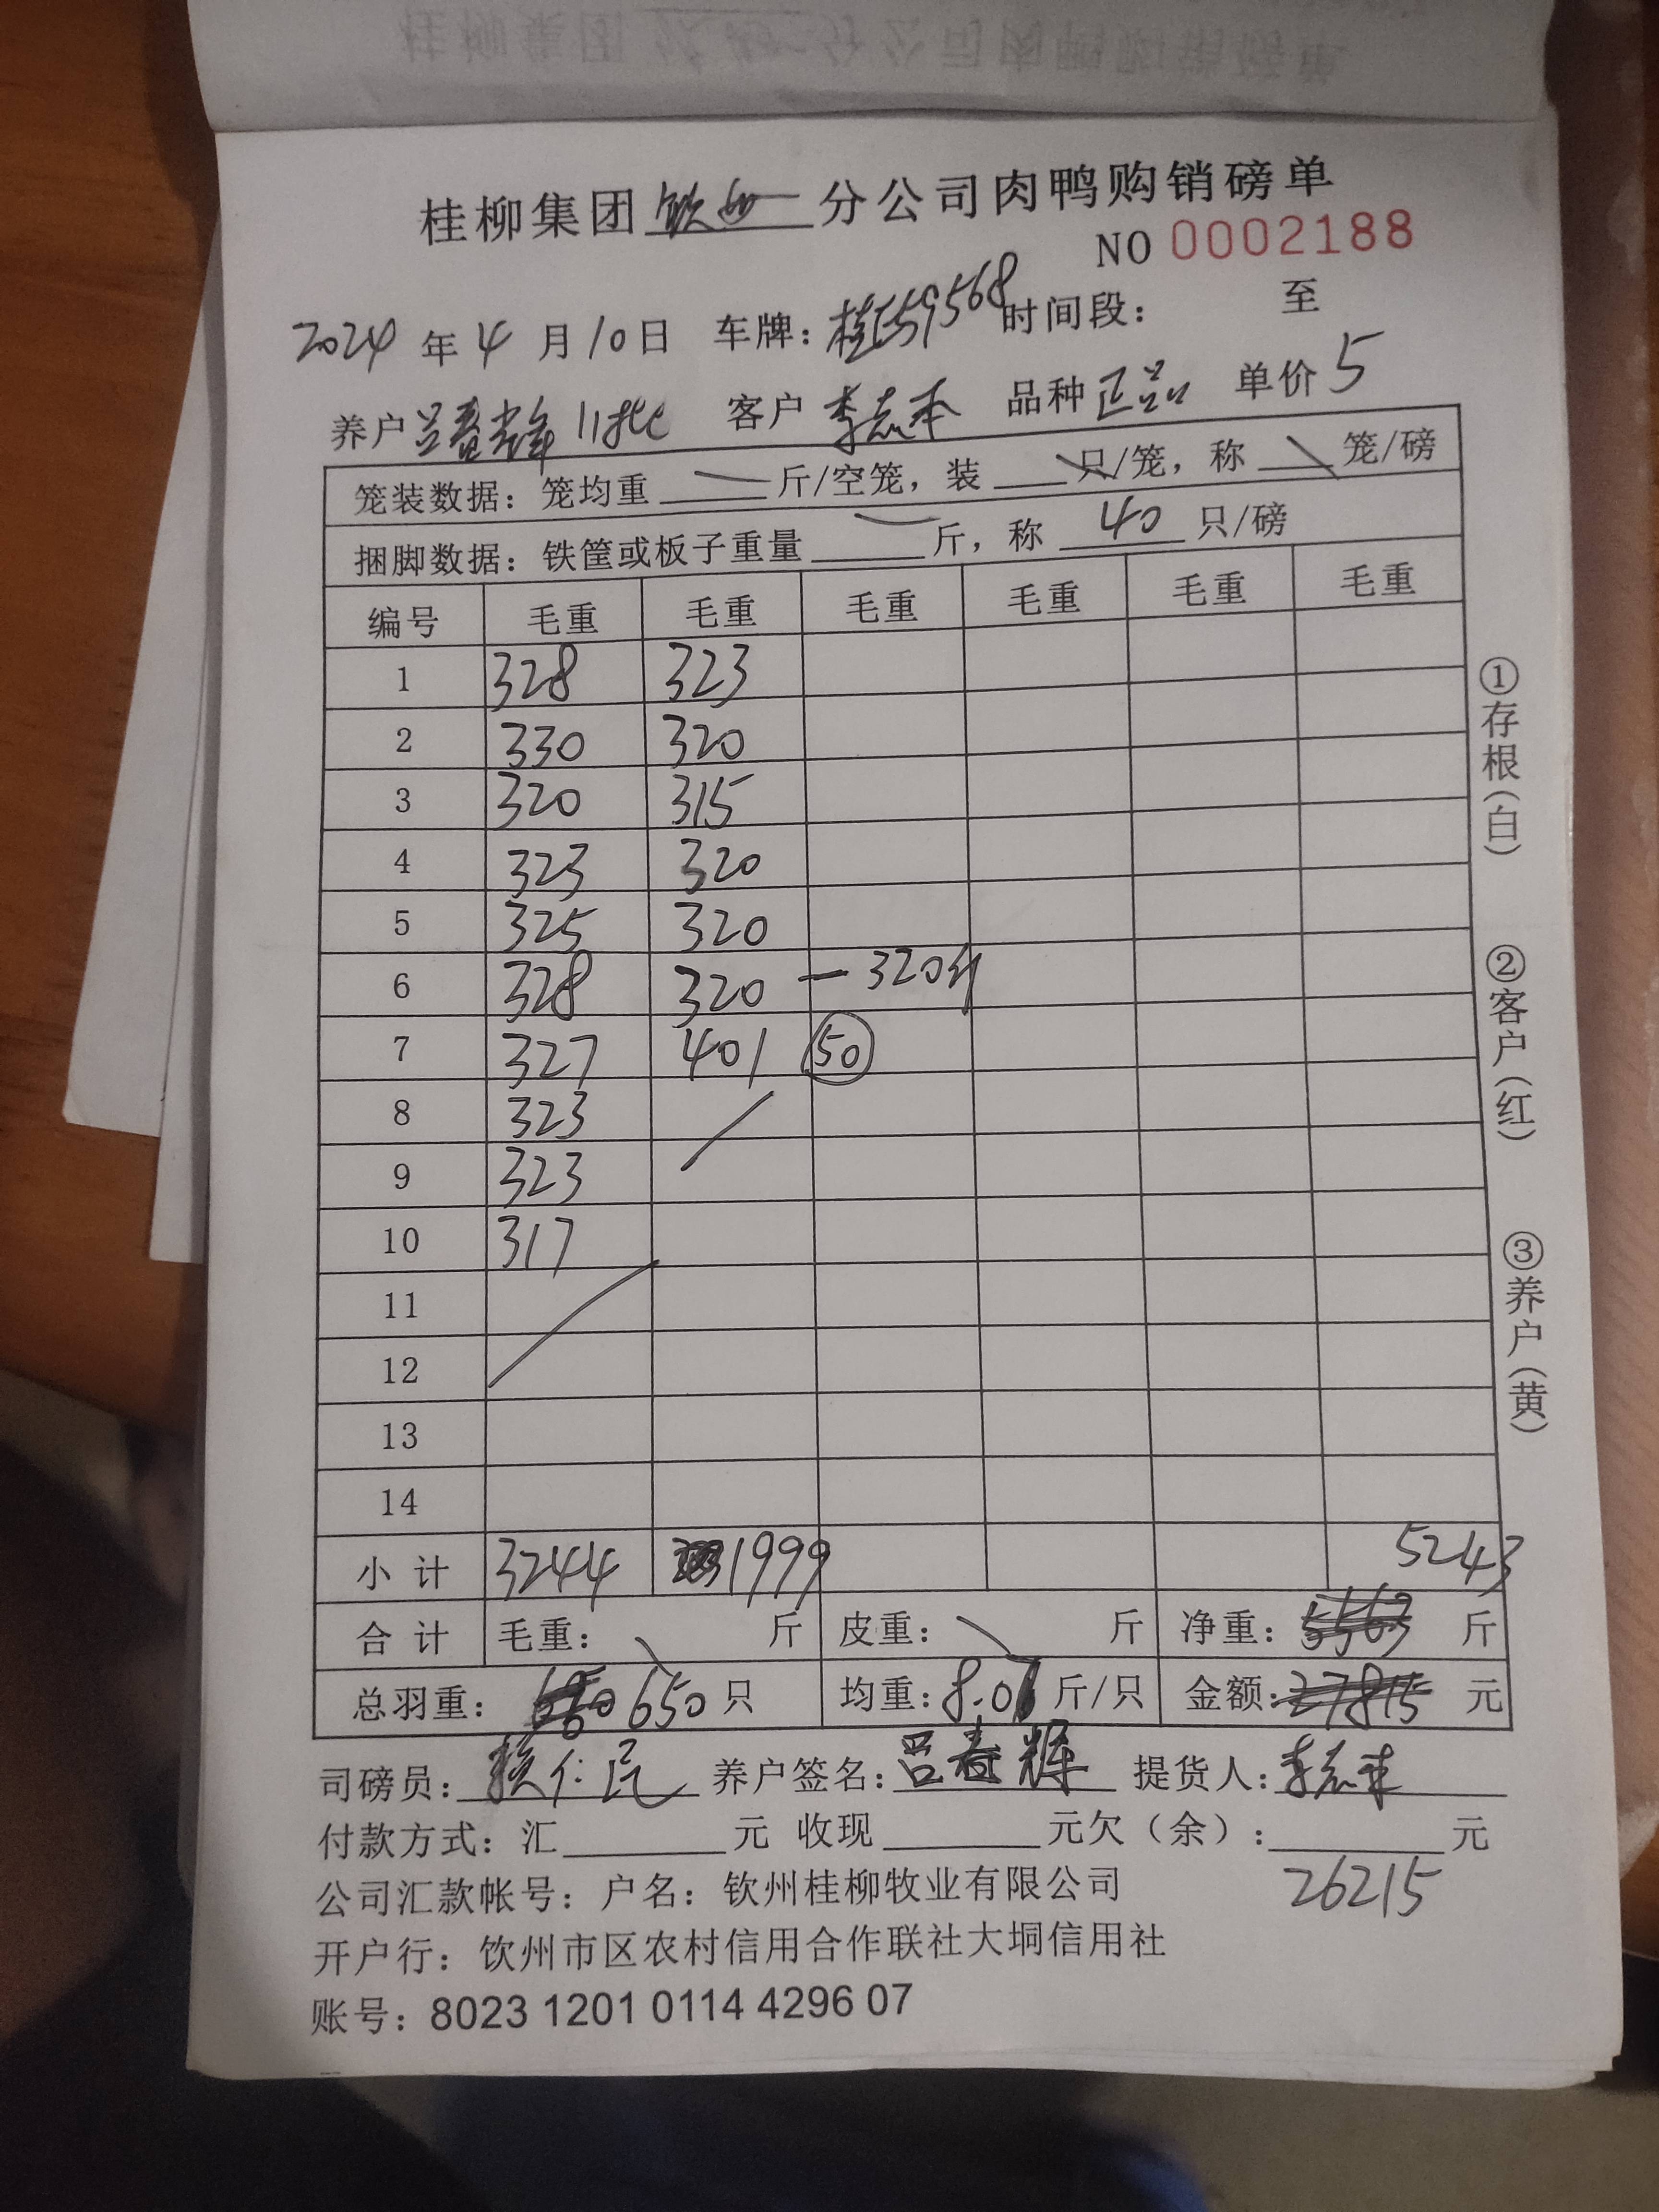 桂柳集团钦州分公司肉鸭购销磅单
NO 0002188
2024年4月10日 车牌：桂 59568 时间段： 至
养户吕春辉11批 客户 李志本 品种 正品 单价 5
笼装数据：笼均重 斤/空笼，装 只/笼，称 笼/磅
捆脚数据：铁筐或板子重量 斤，称 40 只/磅
编号 毛重 毛重 毛重 毛重 毛重 毛重
1 328 323
2 330 320
3 320 315
4 323 320
5 325 320
6 328 320 — 320斤
7 327 401 50
8 323
9 323
10 317
11
12
13
14
小计 3244 1999 5243
合计 毛重： 斤 皮重： 斤 净重：5563 斤
总羽重： 650只 均重：8.07斤/只 金额：27815 元
司磅员：赖仁民 养户签名：吕春辉 提货人：李志本
付款方式：汇 元 收现 元欠（余）： 元
26215
公司汇款帐号：户名：钦州桂柳牧业有限公司
开户行：饮州市区农村信用合作联社大垌信用社
账号：8023 1201 0114 4296 07
①存根（白）
②客户（红）
③养户（黄）